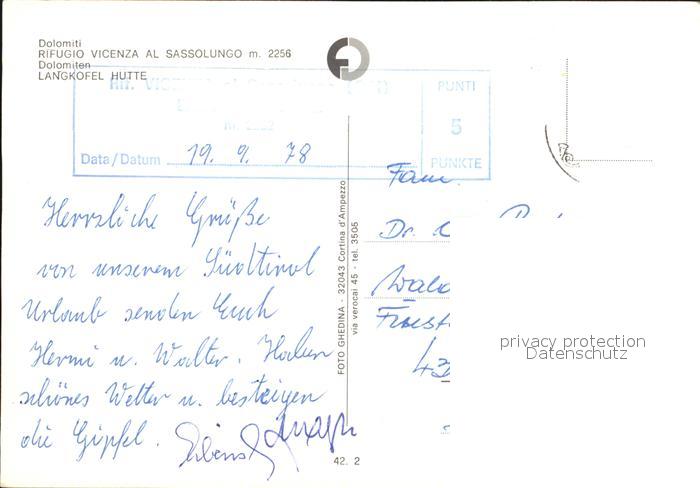 Dolomiti
RIFUGIO VICENZA AL SASSOLUNGO m. 2256
Dolomiten
LANGKOFEL HUTTE
Rif. VICENZA al
PUNTI
5
PUNKTE
Data/Datum 19. 9. 78
Herzliche Grüße
von unserem Südtirol
Urlaub senden Euch
Hermi u. Walter. Haben
schönes Wetter u. besteigen
die Gipfel.
FOTO GHEDINA - 32043 Cortina d'Ampezzo
via verocai 45 - tel. 3505
42. 2
Fam.
Dr.
privacy protection
Datenschutz